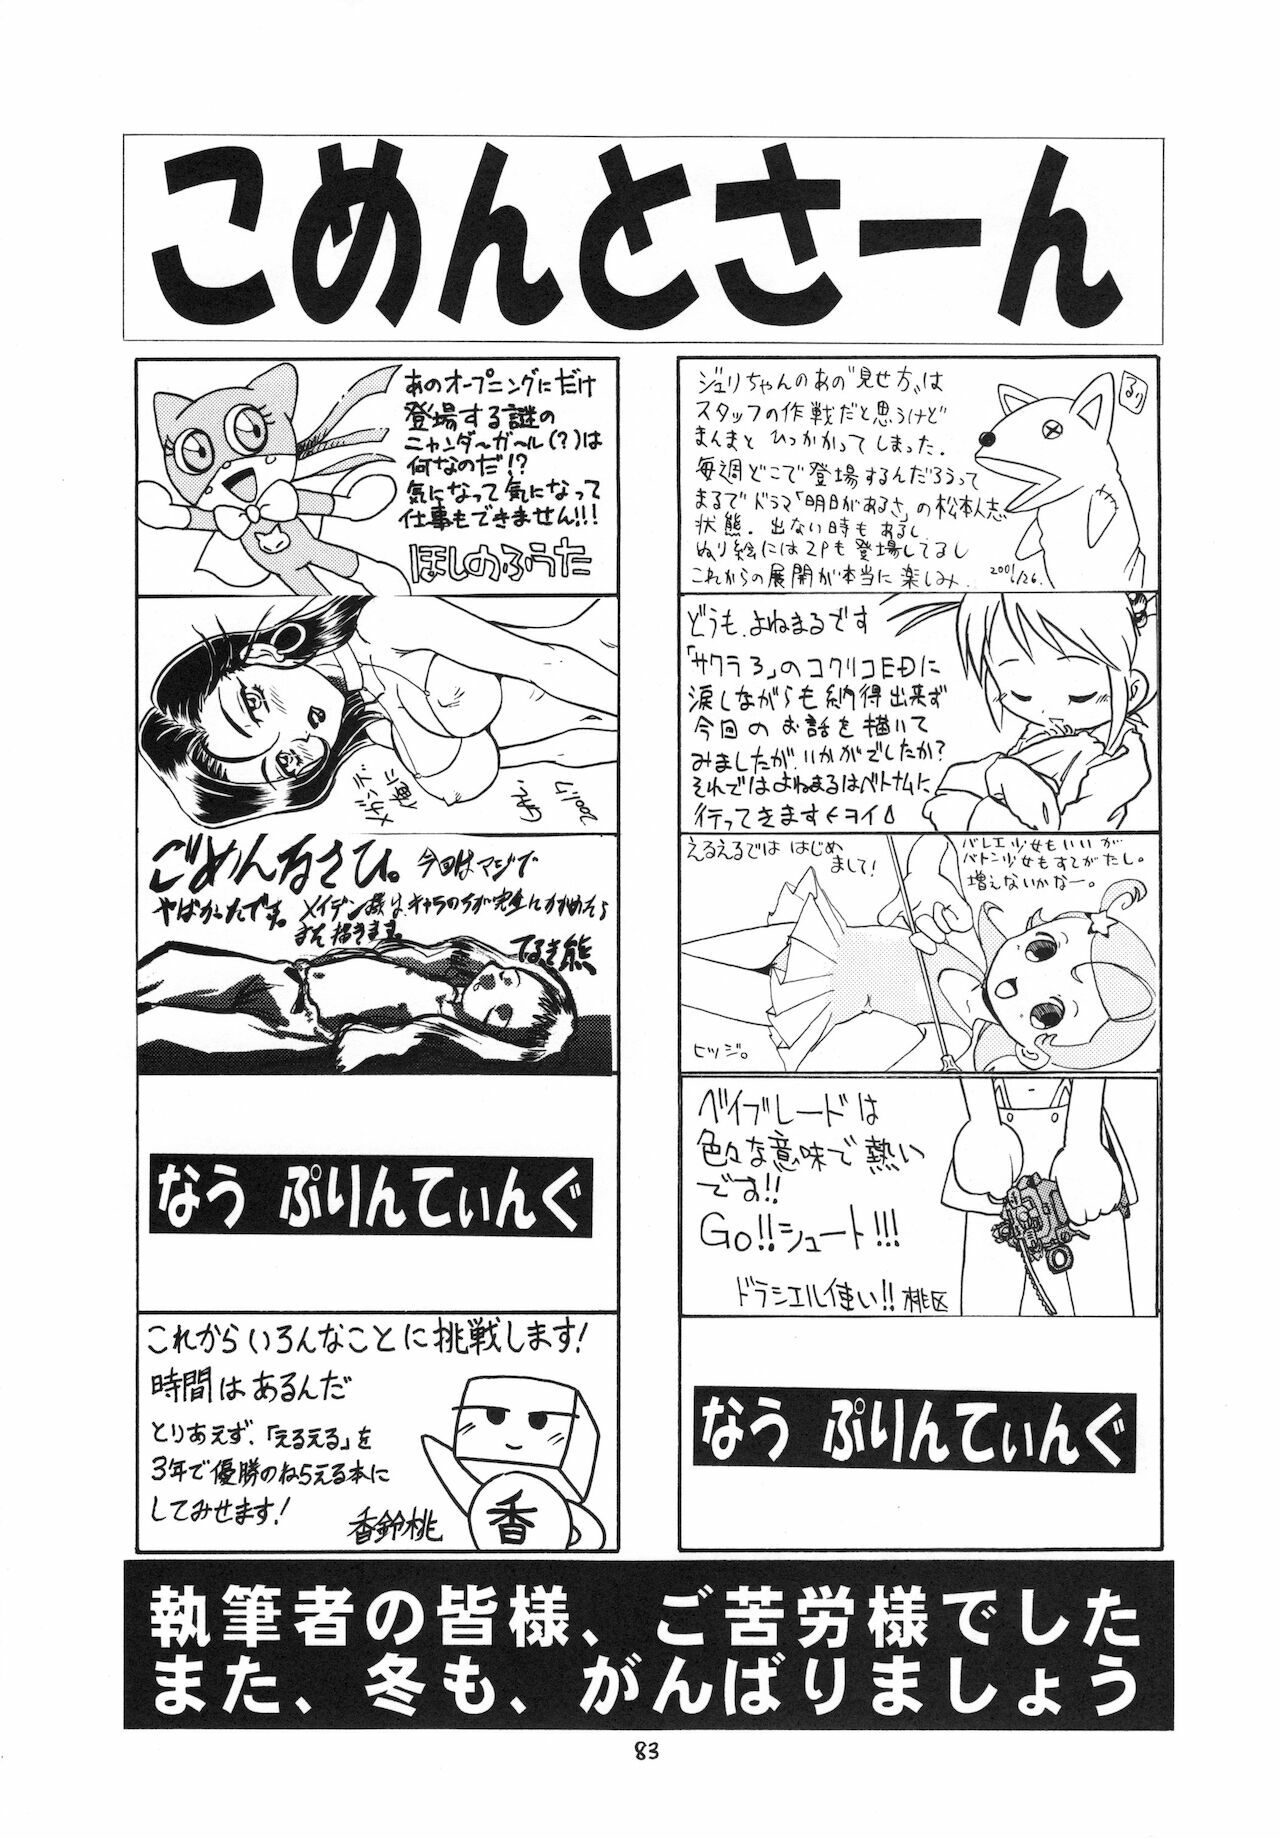 こめんとさーん
ジュリちゃんのあの"見せ方"は
スタッフの作戦だと思うけど
まんまと ひっかかってしまった.
毎週どこで登場するんだろうって
まるでドラマ「明日があるさ」の松本人志
状態. 出ない時もあるし
ぬり絵には2Pも登場してるし
これからの展開が本当に楽しみ.
るり
どうも、よねまるです
「サクラ3」のコクリコEDに
涙しながらも納得出来ず
今回のお話を描いて
みましたが、いかがでしたか?
それではよねまるはベトナムに
行ってきます
えるえるでは はじめ
まして!
バレエ少女もいいが
バトン少女もすてがたし。
増えないかなー。
ヒツジ。
ベイブレードは
色々な意味で熱い
です!!
Go!!シュート!!!
ドラシエル使い!! 桃区
なう ぷりんてぃんぐ
あのオープニングにだけ
登場する謎の
ニャンダーガール(?)は
何なのだ!?
気になって気になって
仕事もできません!!!
ほしのふうた
ごめんなさひ。今回はマジで
やばかったです。
てるき熊
なう ぷりんてぃんぐ
これからいろんなことに挑戦します!
時間はあるんだ
とりあえず、「えるえる」を
3年で優勝のねらえる本に
してみせます!
香鈴桃
香
執筆者の皆様、ご苦労様でした
また、冬も、がんばりましょう
83